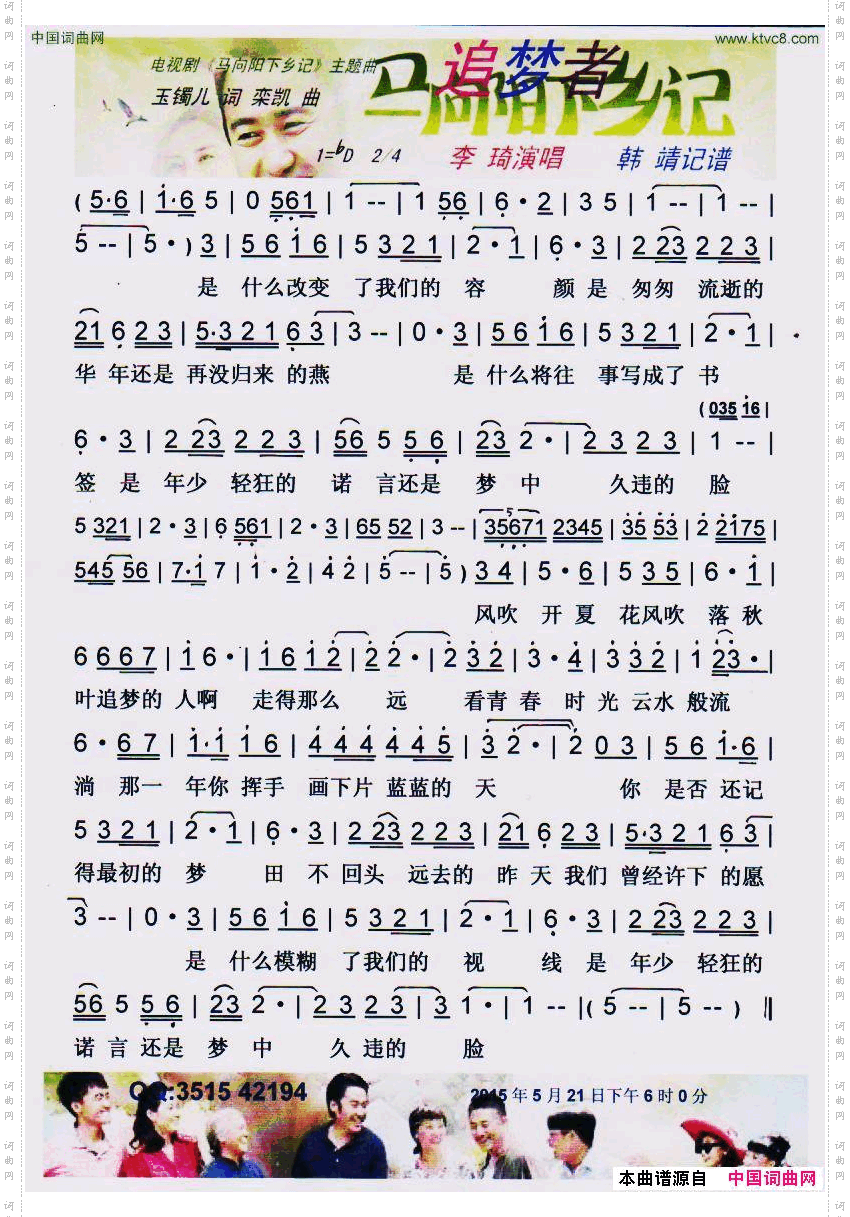 中国词曲网
www.ktvc8.com
电视剧《马向阳下乡记》主题曲
追梦者
马向阳下乡记
玉镯儿 词 栾凯 曲
1=♭D 2/4
李 琦演唱 韩 靖记谱
( 5·6 | i·6 5 | 0 561 | 1 -- | 1 56 | 6·2 | 3 5 | 1 -- | 1 -- |
5 -- | 5· ) 3 | 5 6 i 6 | 5 3 2 1 | 2·1 | 6·3 | 2 23 2 2 3 |
是 什么改变 了我们的 容 颜 是 匆匆 流逝的
21 6 2 3 | 5·3 2 1 6 3 | 3 -- | 0·3 | 5 6 i 6 | 5 3 2 1 | 2·1 |
华 年还是 再没归来 的燕 是 什么将往 事写成了 书
( 035 i6 |
6·3 | 2 23 2 2 3 | 56 5 5 6 | 23 2· | 2 3 2 3 | 1 -- |
签 是 年少 轻狂的 诺 言还是 梦 中 久违的 脸
5 321 | 2·3 | 6 561 | 2·3 | 65 52 | 3 -- | 35671 2345 | i3 53 | 2 2175 |
545 56 | 7·i 7 | i·2 | 4 2 | 5 -- | 5 ) 3 4 | 5·6 | 5 3 5 | 6·i |
风吹 开 夏 花风吹 落 秋
6 6 6 7 | i 6· | i 6 i 2 | 2 2· | 2 3 2 | 3·4 | 3 3 2 | 1 23· |
叶追梦的 人啊 走得那么 远 看青 春 时 光 云水 般流
6·6 7 | i·i i 6 | 4 4 4 4 4 5 | 3 2· | 2 0 3 | 5 6 i·6 |
淌 那一 年你 挥手 画下片 蓝蓝的 天 你 是否 还记
5 3 2 1 | 2·1 | 6·3 | 2 23 2 2 3 | 21 6 2 3 | 5·3 2 1 6 3 |
得最初的 梦 田 不 回头 远去的 昨 天我们 曾经许下 的愿
3 -- | 0·3 | 5 6 i 6 | 5 3 2 1 | 2·1 | 6·3 | 2 23 2 2 3 |
是 什么模糊 了我们的 视 线 是 年少 轻狂的
56 5 5 6 | 23 2· | 2 3 2 3 | 3 1· | 1 -- |( 5 -- | 5 -- ) ‖
诺 言 还是 梦 中 久 违的 脸
QQ:3515 42194
2015年5月21日下午6时0分
本曲谱源自 中国词曲网